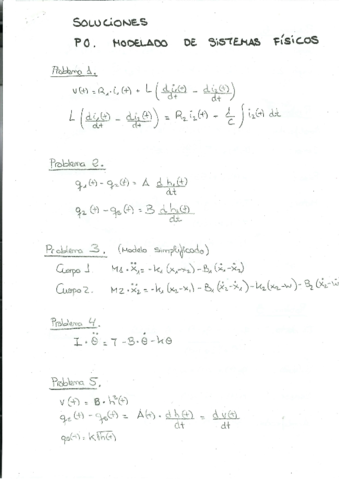 SOLUCIONES
P0. MODELADO DE SISTEMAS FÍSICOS
Problema 1.
v(t) = R₁·i₁(t) + L (di₁(t)/dt - di₂(t)/dt)
L (di₁(t)/dt - di₂(t)/dt) = R₂ i₂(t) - 1/C ∫ i₂(t) dt
Problema 2.
q₁(t) - q₂(t) = A dh₁(t)/dt
q₂(t) - q₀(t) = B dh₂(t)/dt
Problema 3. (Modelo simplificado)
Cuerpo 1 M1·ẍ₁ = -k₁(x₁-x₂) - B₁(ẋ₁-ẋ₂)
Cuerpo 2. M2·ẍ₂ = -k₁(x₂-x₁) - B₁(ẋ₂-ẋ₁) - k₂(x₂-w) - B₂(ẋ₂-
Problema 4.
I·θ̈ = T - B·θ̇ - kθ
Problema 5.
v(t) = B·h³(t)
q₁(t) - q₀(t) = A(t)· dh(t)/dt = dv(t)/dt
q₀(t) = k√h(t)